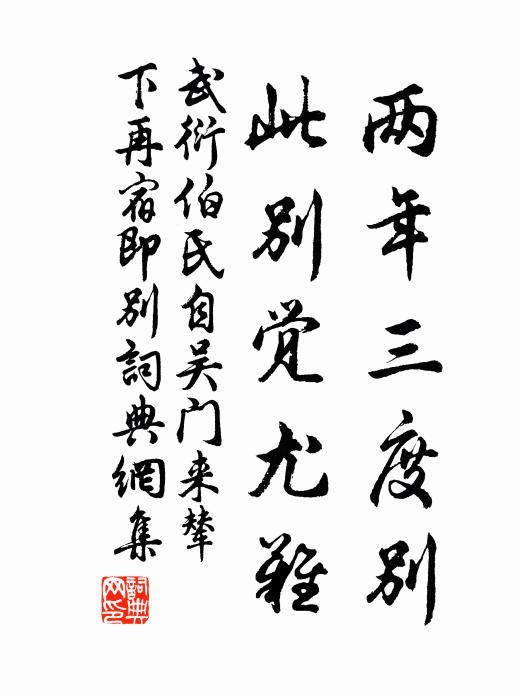 两年三度别
此别觉尤难
武衍伯氏自吴门来辇
下再宿即别詞典網集
詞典
网印